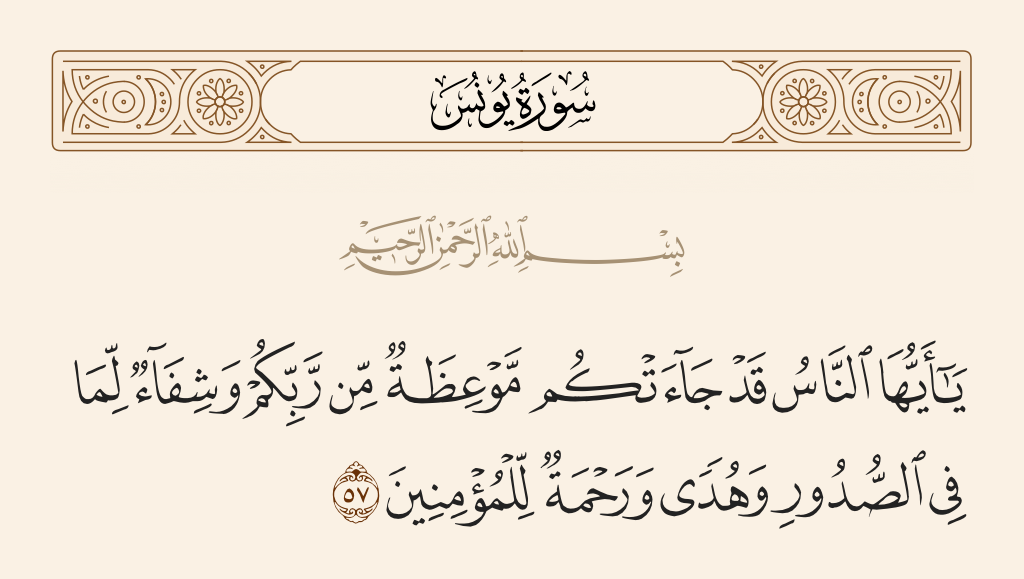 سُورَةُ يُونُسَ
بِسْمِ ٱللَّهِ ٱلرَّحْمَٰنِ ٱلرَّحِيمِ
يَـٰٓأَيُّهَا ٱلنَّاسُ قَدْ جَآءَتْكُم مَّوْعِظَةٌ مِّن رَّبِّكُمْ وَشِفَآءٌ لِّمَا
فِى ٱلصُّدُورِ وَهُدًى وَرَحْمَةٌ لِّلْمُؤْمِنِينَ ٥٧